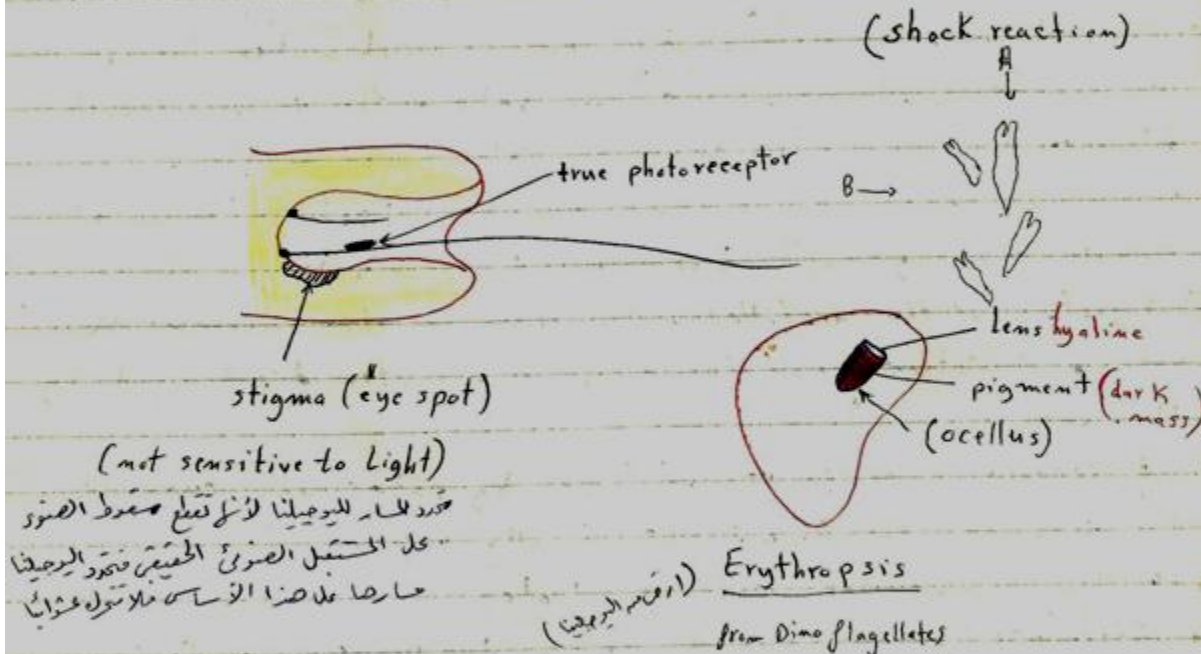 (shock reaction)
A
B
true photoreceptor
stigma (eye spot)
(not sensitive to Light)
تحدد المسار لليوجلينا لأنها تقطع سقوط الضوء
على المستقبل الضوئى الحقيقى فتحدد اليوجلينا
مسارها على هذا الأساس فلا تتحرك عشوائيا
lens hyaline
pigment (dark mass)
(ocellus)
Erythropsis
(ارقى من اليوجلينا)
from Dinoflagellates